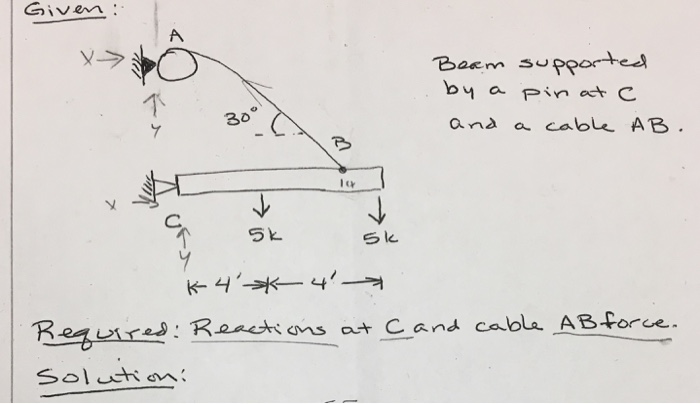 Given:
A
X
Beam supported
by a pin at C
and a cable AB.
Y
30°
B
X
C
Y
5k
5k
4' 4'
Required: Reactions at C and cable AB force.
Solution: